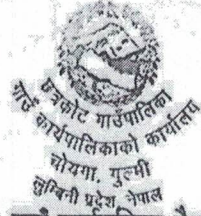 छत्रकोट गाउँपालिका
गाउँ कार्यपालिकाको कार्यालय
गुल्मी
लुम्बिनी प्रदेश नेपाल